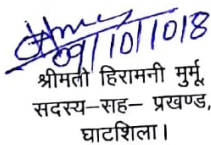 09/10/1018
श्रीमती हिरामनी मुर्मू,
सदस्य–सह– प्रखण्ड,
घाटशिला।